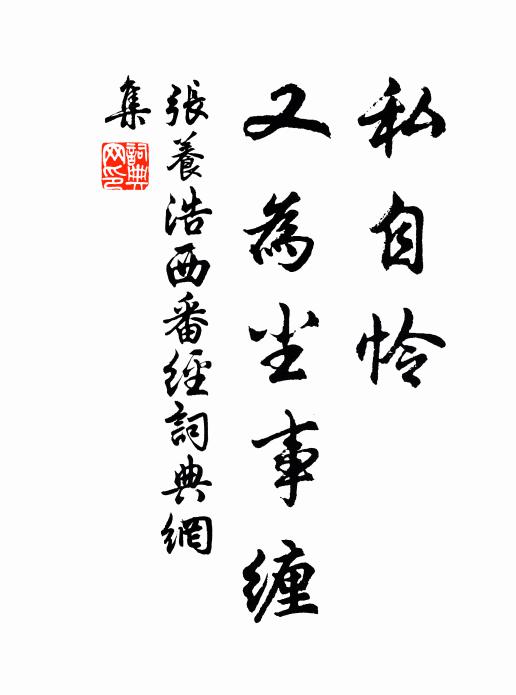 私自怜
又為尘事缠
張養浩西番經詞典網
集
詞典
网印